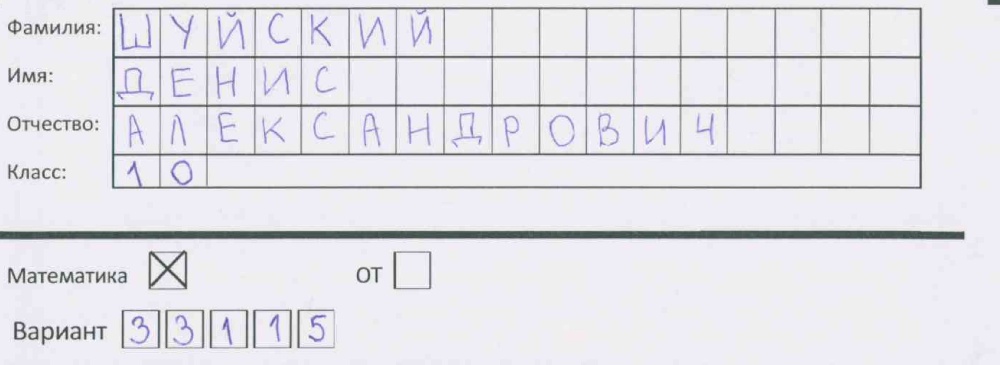 Фамилия: ШУЙСКИЙ
Имя: ДЕНИС
Отчество: АЛЕКСАНДРОВИЧ
Класс: 10
Математика ☒ ОТ ☐
Вариант 33115